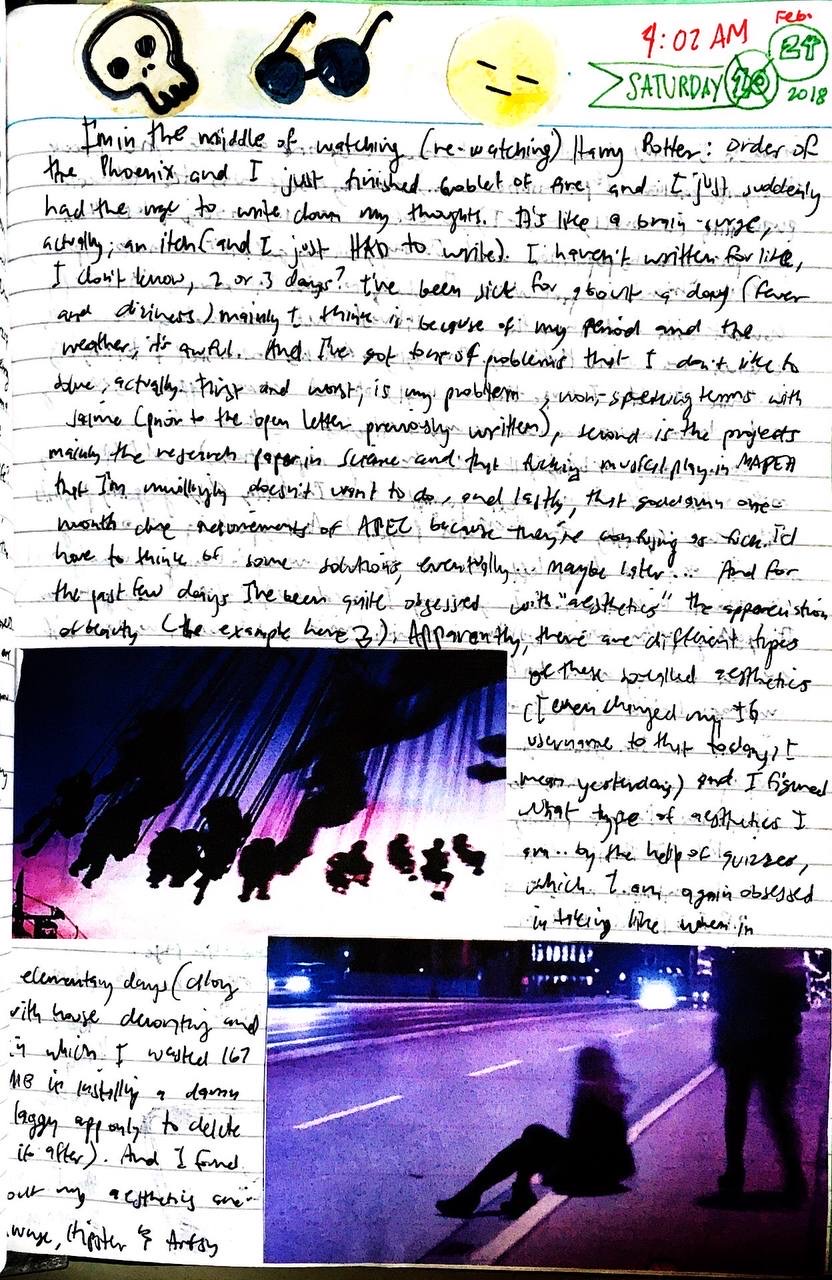 Feb.
4:02 AM
24
SATURDAY 10
2018
I'm in the middle of watching (re-watching) Harry Potter: Order of
the Phoenix and I just finished Goblet of Fire and I just suddenly
had the urge to write down my thoughts. It's like a brain-surge,
actually, an itch (and I just HAD to write). I haven't written for like,
I don't know, 2 or 3 days? I've been sick for about a day (fever
and diziness) mainly I think is because of my period and the
weather, it's awful. And I've got tons of problems that I don't like to
solve, actually. First and worst, is my problem non-speaking terms with
Jaime (prior to the open letter previously written), second is the projects
mainly the research paper in Science and that fucking musical play in MAPEH
that I'm unwillingly doesn't want to do, and lastly, that goddamn one-
month due requirements of APEC because they're confusing as fuck. I'd
have to think of some solutions, eventually... maybe later... And for
the past few days I've been quite obsessed with "aesthetics" the appreciation
of beauty (the example here), Apparently, there are different types
of these so-called aesthetics
(I even changed my IG
username to that today, I
mean yesterday) and I figured
what type of aesthetics I
am.. by the help of quizzes,
which I am again obsessed
in taking like when in
elementary days (along
with house decorating and
in which I wasted 167
MB in installing a damn
laggy app only to delete
it after). And I found
out my aesthetics are
Hipster & Artsy